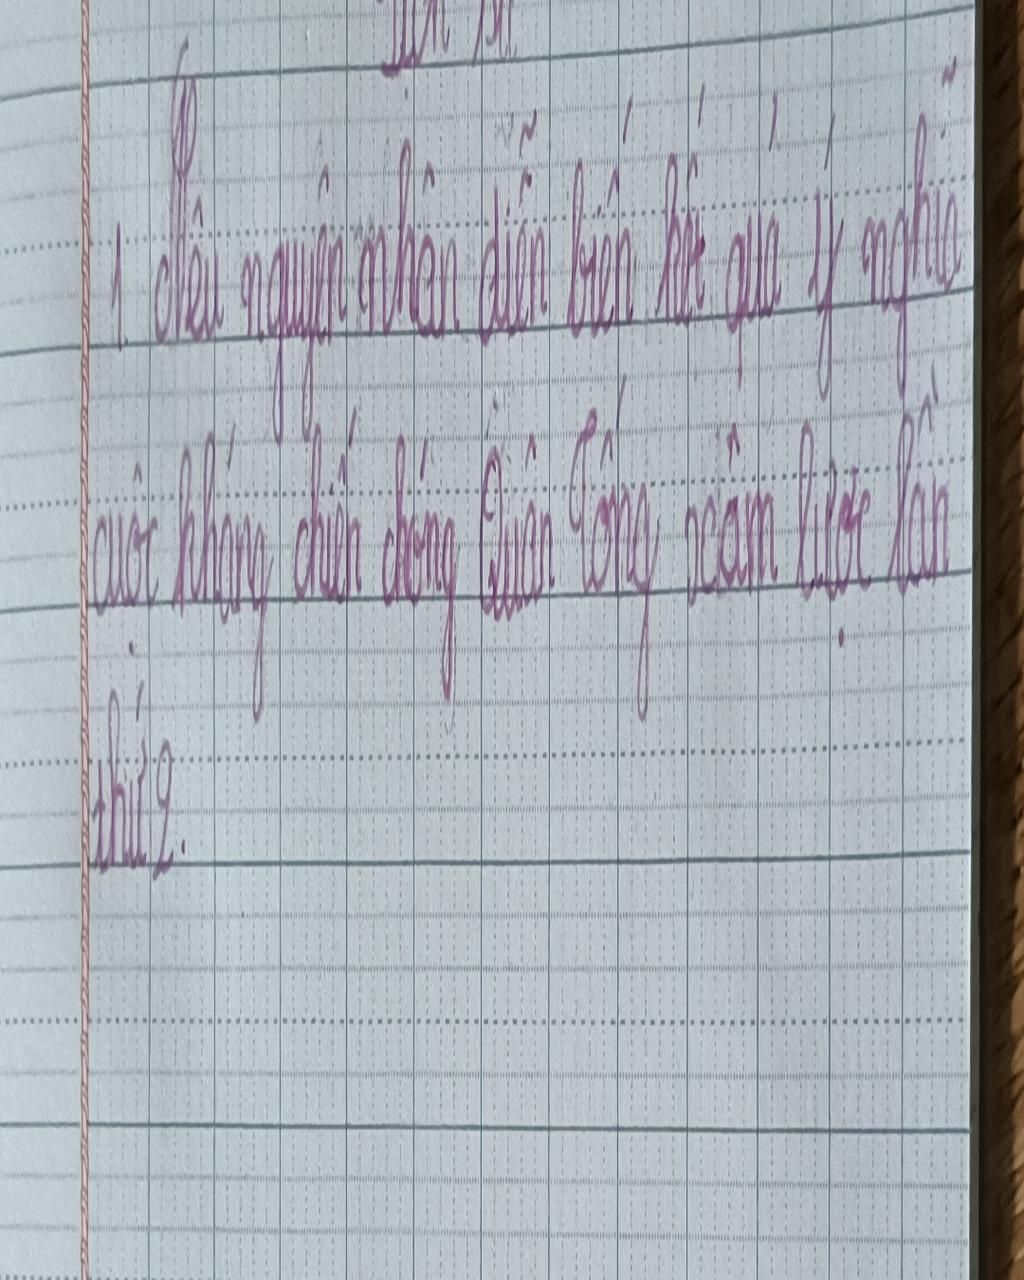 1. Nêu nguyên nhân diễn biến kết quả ý nghĩa
cuộc kháng chiến chống Quân Tống xâm lược lần
thứ 2.